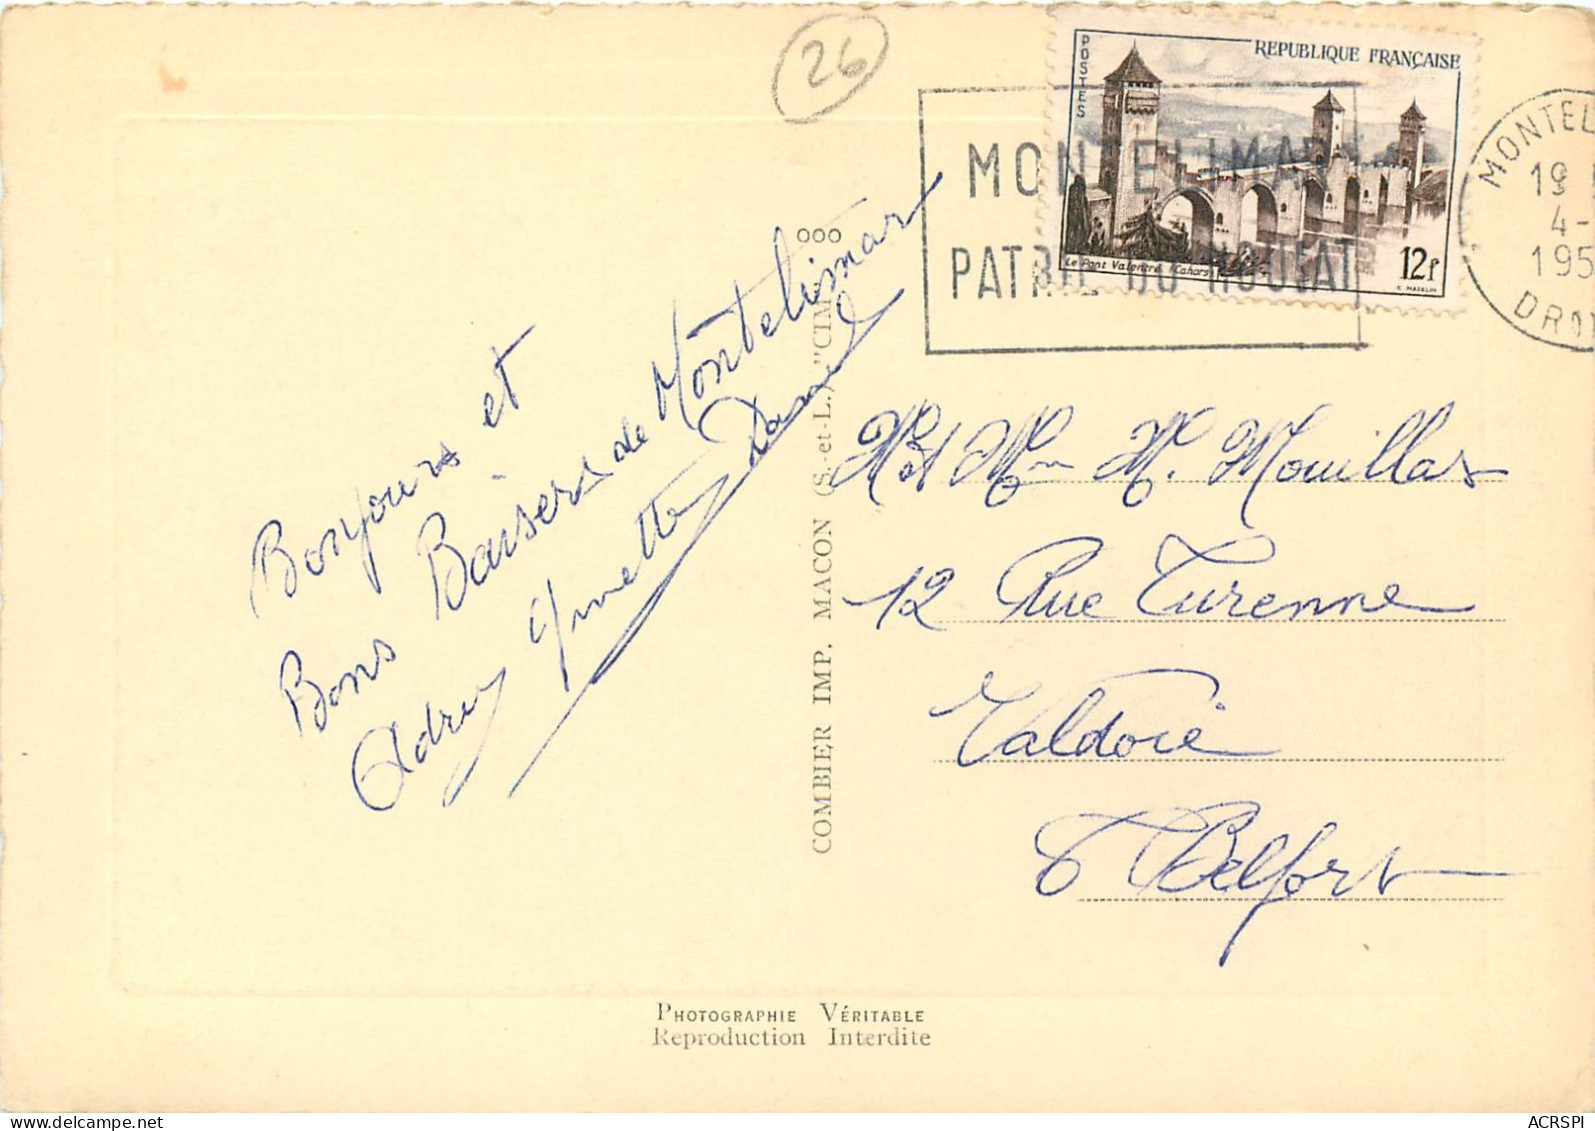 26
POSTES
REPUBLIQUE FRANÇAISE
Le Pont Valentré (Cahors)
12f
C. MAZELIN
MONTELIMAR
PATRIE DU NOUGAT
MONTEL
19
4-
195
DRO
Bonjours et
Bons Baisers de Montelimar
Ginette
M et Mme M. Mouillas
12 Rue Turenne
Valdoie
T Belfort
COMBIER IMP. MACON (S.-et-L.) "CIM"
PHOTOGRAPHIE VÉRITABLE
Reproduction Interdite
ACRSPI